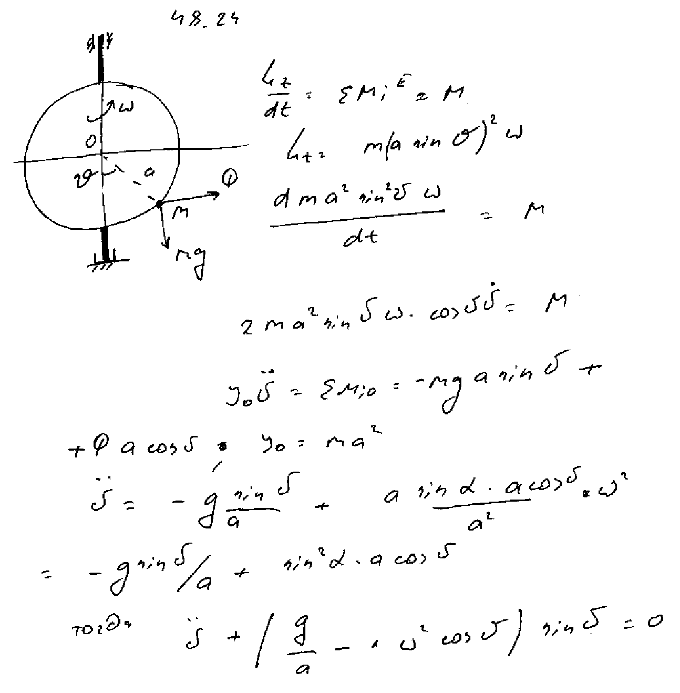 48.24
ω
O
ϑ
a
Φ
M
mg
Lz/dt = ΣMiᴱ = M
Lz = m(a sin ϑ)² ω
d ma² sin²ϑ ω / dt = M
2 ma² sin ϑ ω · cos ϑ ϑ̇ = M
J₀ ϑ̈ = ΣMi₀ = -mg a sin ϑ +
+ Φ a cos ϑ, J₀ = ma²
ϑ̈ = -g sin ϑ / a + a sin α · a cos ϑ / a² · ω²
= -g sin ϑ / a + sin² α · a cos ϑ
тогда ϑ̈ + (g/a - ω² cos ϑ) sin ϑ = 0